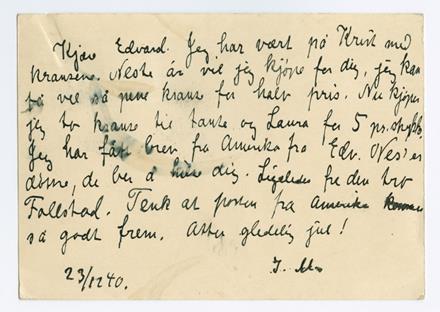 Kjære Edvard. Jeg har vært på Krist med
kransene. Neste år vil jeg kjøpe for dig, jeg kan
få vel så pene kranse for halv pris. Nu kjøper
jeg to kranse til tante og Laura for 5 pr. stykk.
Jeg har fått brev fra Amerika fra Edv. Nes's
døtre, de ber å hilse dig. Ligeledes fra den
Follstad. Tenk at posten fra Amerika kommer
så godt frem. Atter gledelig jul!
23/12 40.